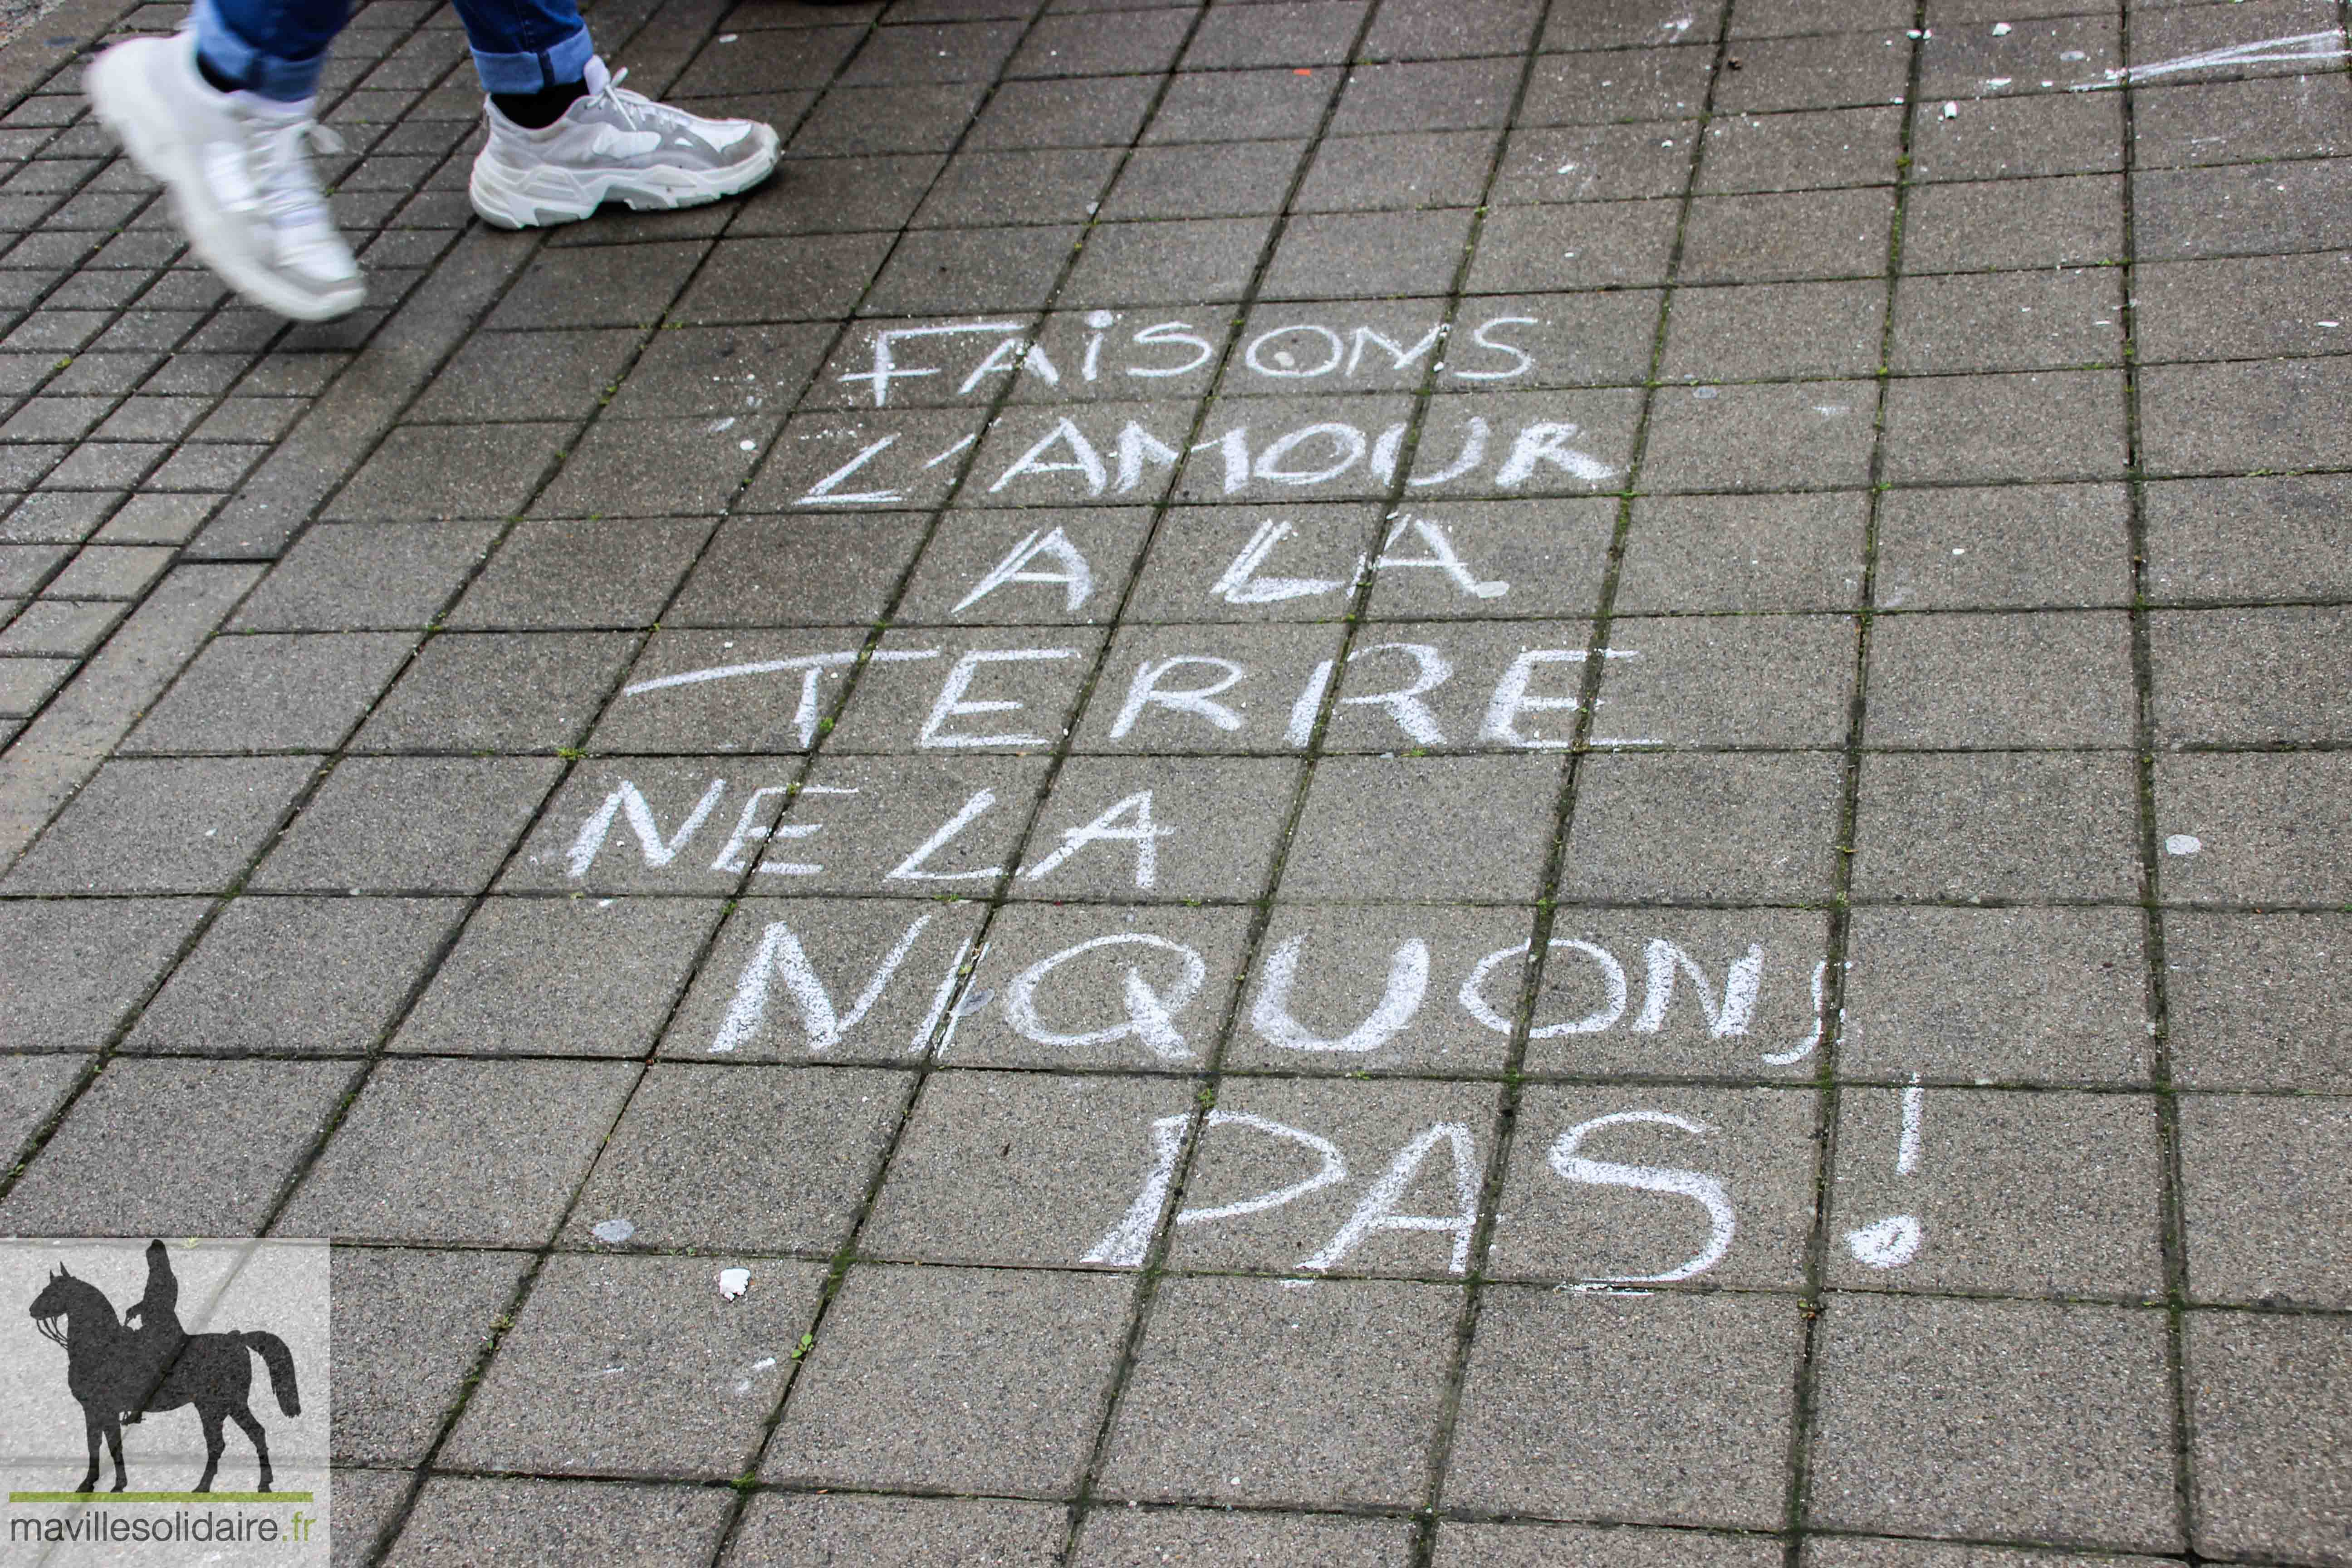 FAiSONS
L'AMOUR
A LA
TERRE
NE LA
NIQUONS
PAS !
mavillesolidaire.fr